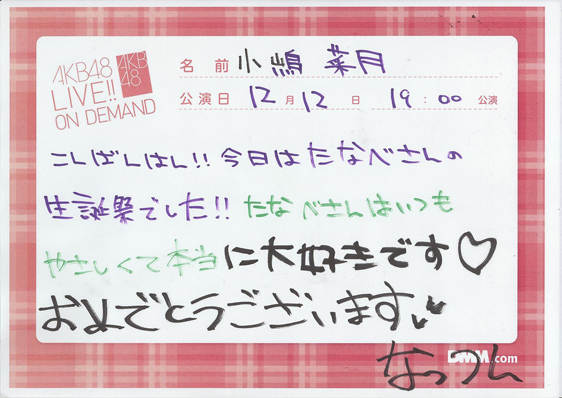 AKB48
LIVE!!
ON DEMAND
AKB
48
名前 小嶋 菜月
公演日 12月12日 19:00 公演
こんばんはん!!今日はたなべさんの
生誕祭でした!!たなべさんはいつも
やさしくて本当に大好きです♡
おめでとうございます
なっつん
DMM.com